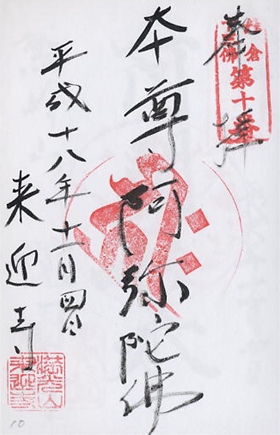 奉拝
第十番
本尊阿弥陀佛
平成十八年十一月四日
来迎寺
10